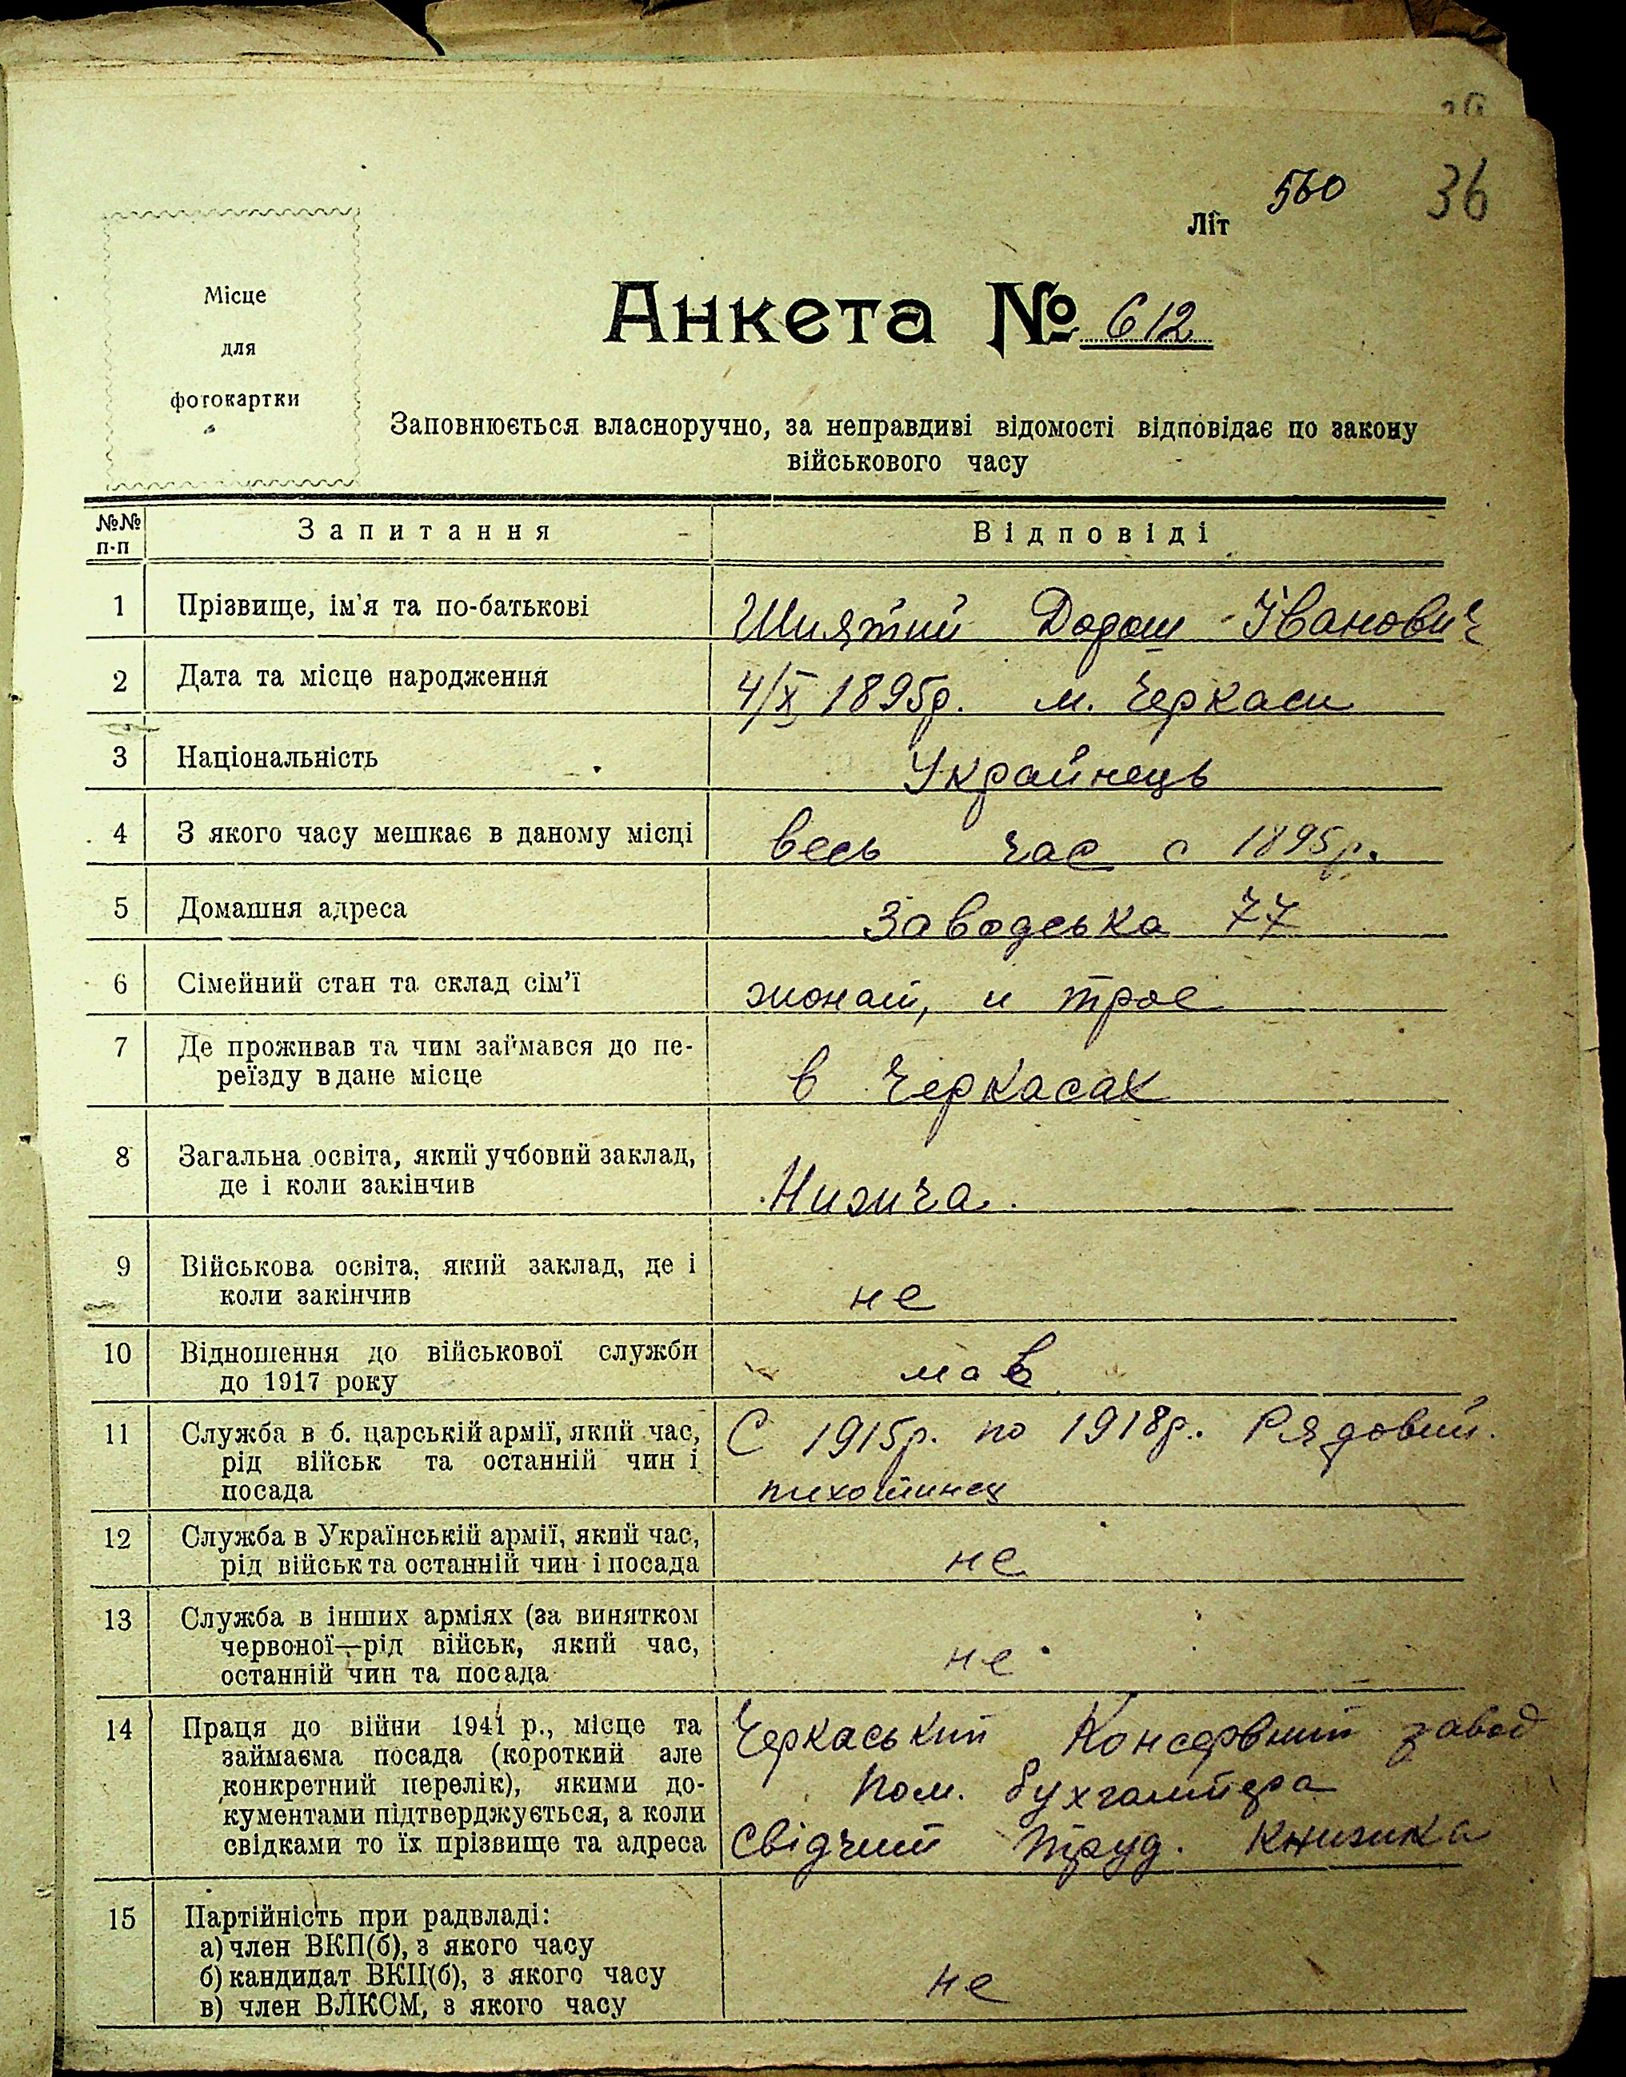 36
560
Літ
Місце
для
фотокартки
Анкета № 612
Заповнюється власноручно, за неправдиві відомості відповідає по закону
військового часу
№№ п-п Запитання Відповіді
1 Прізвище, ім'я та по-батькові Іванович
2 Дата та місце народження 4/X 1895р. м. Черкаси
3 Національність Українець
4 З якого часу мешкає в даному місці весь час с 1895р.
5 Домашня адреса Заводська 77
6 Сімейний стан та склад сім'ї жонат, и трое
7 Де проживав та чим займався до пе-
реїзду в дане місце в Черкасах
8 Загальна освіта, який учбовий заклад,
де і коли закінчив Нижча.
9 Військова освіта, який заклад, де і
коли закінчив не
10 Відношення до військової служби
до 1917 року мав
11 Служба в б. царській армії, який час, С 1915р. по 1918р. Рядовий.
рід військ та останній чин і
посада пихотинец
12 Служба в Українській армії, який час,
рід військ та останній чин і посада не
13 Служба в інших арміях (за винятком
червоної—рід військ, який час,
останній чин та посада не
14 Праця до війни 1941 р., місце та Черкаський Консервний завод
займаєма посада (короткий але
конкретний перелік), якими до- Пом. бухгалтера
кументами підтверджується, а коли
свідками то їх прізвище та адреса Свідчит труд. книжка
15 Партійність при радвладі:
а) член ВКП(б), з якого часу
б) кандидат ВКП(б), з якого часу не
в) член ВЛКСМ, з якого часу